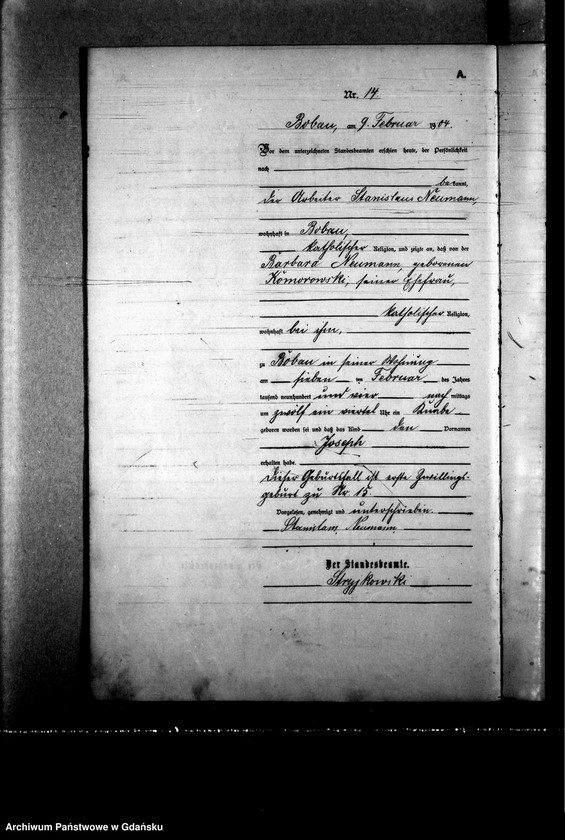 A.
Nr. 14
Bobau, am 9. Februar 1904.
Vor dem unterzeichneten Standesbeamten erschien heute, der Persönlichkeit
nach
bekannt,
der Arbeiter Stanislaus Neumann,
wohnhaft in Bobau,
katholischer Religion, und zeigte an, daß von der
Barbara Neumann, geborenen
Komorowski, seiner Ehefrau,
katholischer Religion,
wohnhaft bei ihm,
zu Bobau in seiner Wohnung
am sieben ten Februar des Jahres
tausend neunhundert und vier nach mittags
um zwölf ein viertel Uhr ein Knabe
geboren worden sei und daß das Kind den Vornamen
Joseph
erhalten habe.
Dieser Geburtsfall ist erste Zwillings-
geburt zu Nr. 15.
Vorgelesen, genehmigt und unterschrieben.
Stanislaw Neumann
Der Standesbeamte.
Stryjkowski
Archiwum Państwowe w Gdańsku